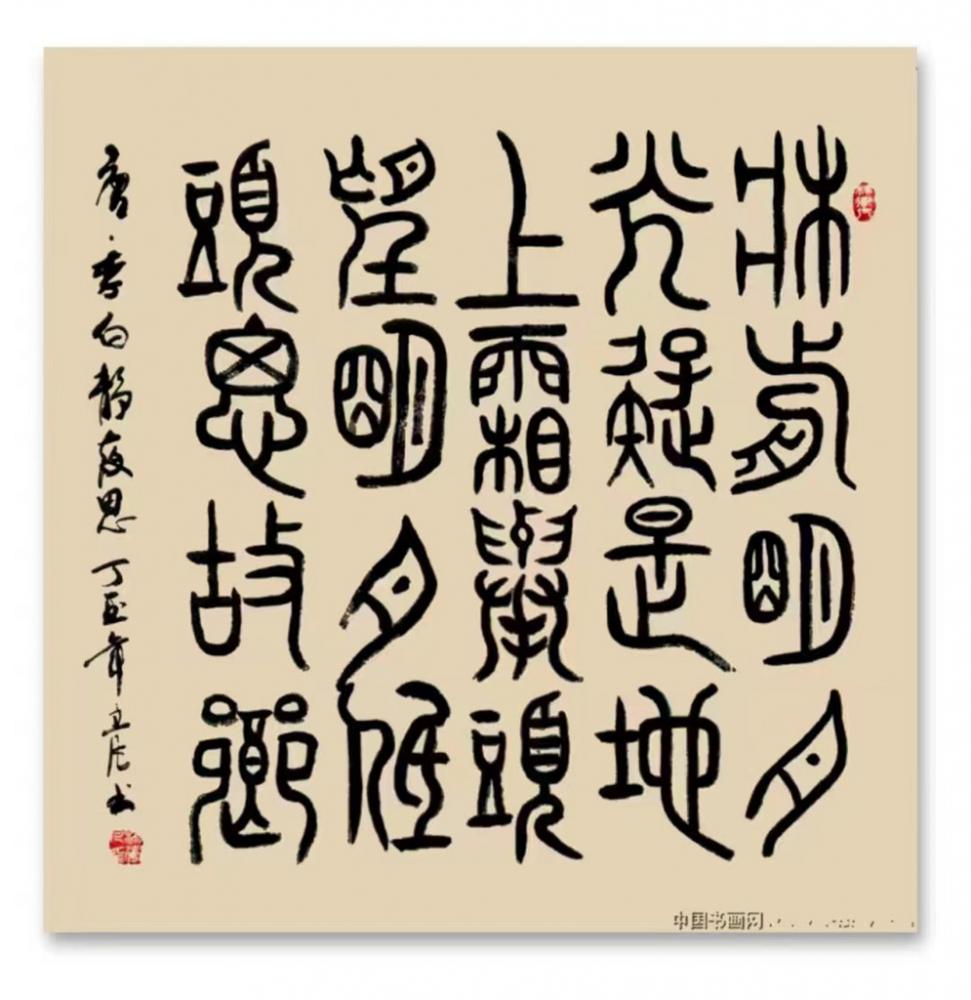 牀前明月
光疑是地
上霜舉頭
望明月低
頭思故鄉
唐·李白静夜思 丁酉年立书
中国书画网